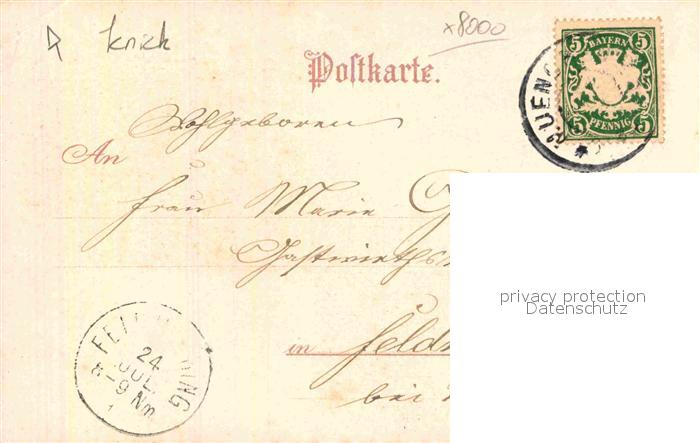 knick
x8000
Postkarte.
5 BAYERN 5
5 PFENNIG 5
MUEN
Wohlgeboren
An
Frau Marie
Gastwirths
in Feld
bei
FEL ING
24
JUL.
8-9 Nm
1
privacy protection
Datenschutz